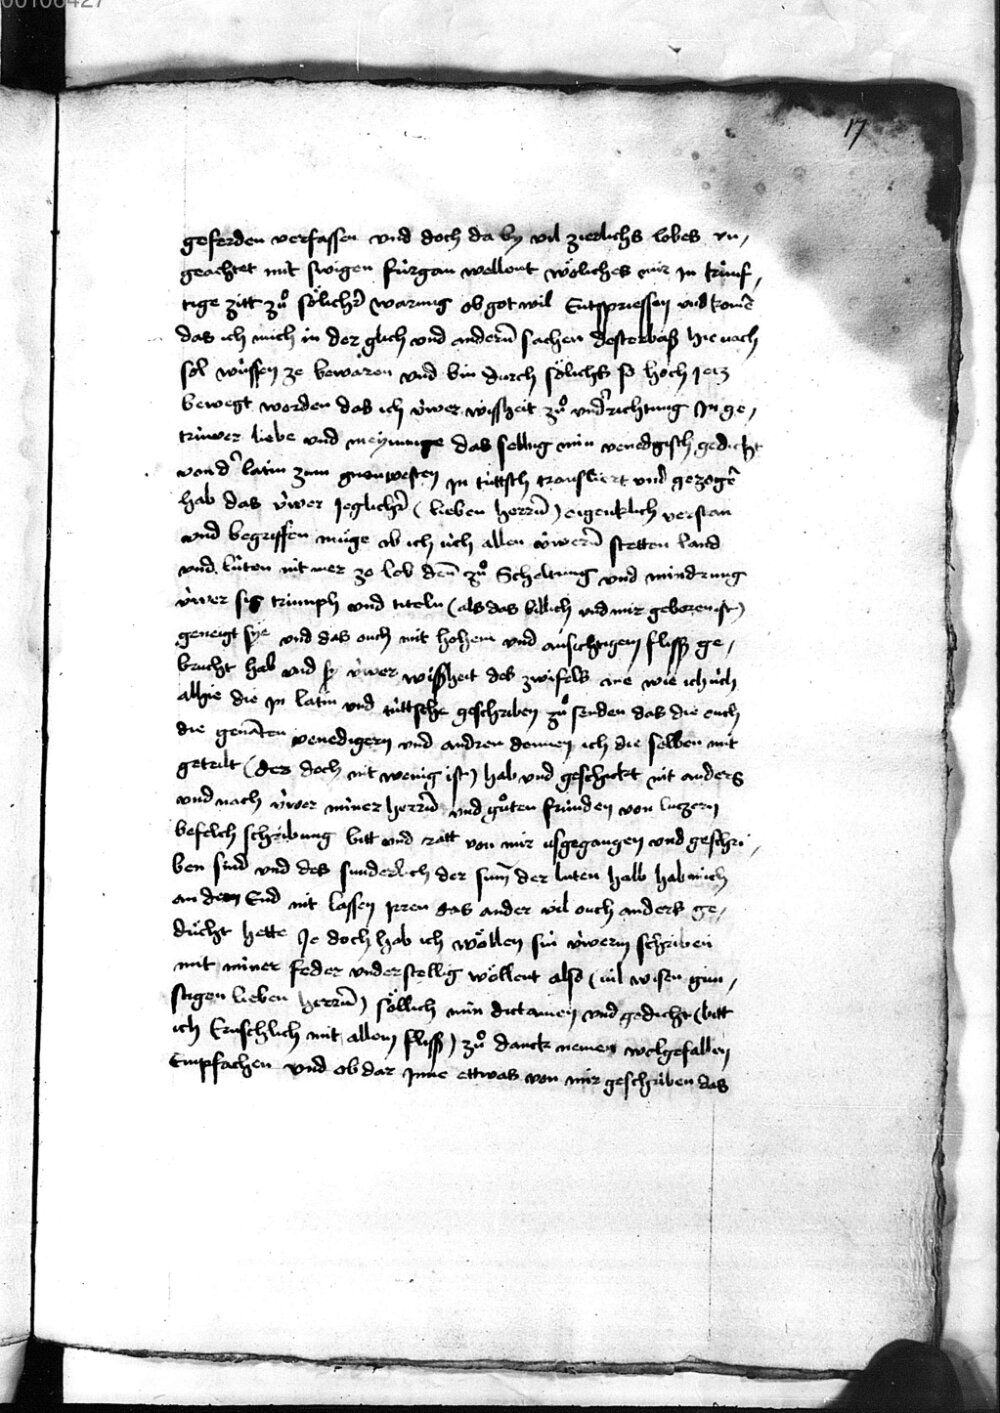 00106427
17
geferden verfassen vnd doch da by vil zierlichs lobes vn,
geachtet mit swigen fürgan wellent wöliches mir jn künf,
tige zitt zů sölicher warnng ob got wil Entspriessen vnd komē
das ich mich in der glich vnd anderñ sachen dester baß hie nach
sol wüssen ze bewären vnd bin durch sölichs so hoch jetz
bewegt worden das ich üwer wissheit zů vnderrichtung jn ge,
trüwer liebe vnd meynunge das selbig min venedgisch gedicht
von d' latin zum jn tüttsch transliert vnd gezogē
hab das üwer jeglicher (lieben herrñ) eigenklich verstan
vnd begriffen müge ob ich üch allen üwerñ stetten land
vnd lüten nit mer ze lob deñ zů Scheltung vnd mindrung
üwer sig triumph vnd titeln (als das billich vnd mir geboren ist)
geneigt sye vnd das ouch mit hohem vnd ansichtigem fliss ge,
brucht hab vnd sy üwer wissheit des zwifels ane wie ich üch
alhie die jn latin vnd tüttsche geschriben zů senden das die ouch
die genāten venedigern vnd andren dennen ich die selben mit
geteilt (des doch nit wenig ist) hab vnd geschickt nit anders
vnd nach üwer miner herrñ vnd gůten fründen von lutzern
befelch schribung bitt vnd ratt von mir usgegangen vnd geschri,
ben sind vnd des sunderlich der sum̄ der luten halb hab mich
an dem End nit lassen jrren das ander vil ouch anders ge,
dücht hette Je doch hab ich wöllen sin üwerm schriben
mit miner feder vnderstellig wöllent also (vil wisen gün,
stigen lieben herrñ) söllich min dictamen vnd gedicht (bitt
ich Ernschlich mit allem fliss) zů danck nemen wolgefallen
Empfachen vnd ob dar jnne ettwas von mir geschriben das